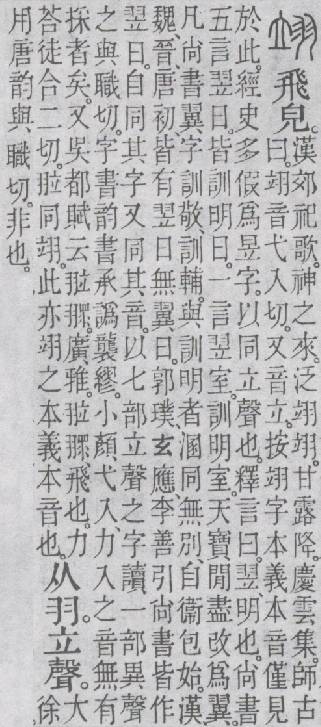 飛皃。
漢郊祀歌。神之來。泛翊翊。甘露降。慶雲集。師古
曰。翊音弋入切。又音立。按翊字本義本音僅見
於此。經史多假爲昱字。以同立聲也。釋言曰。翌、明也。尚書
五言翌日。皆訓明日。一言翌室。訓明室。天寶閒盡改爲翼。
凡尚書翼字訓敬、訓輔、與訓明者溷同無別。自衞包始。漢
魏晉唐初皆有翌日無翼日。郭璞、玄應、李善引尚書皆作
翌日。自同其字又同其音。以七部立聲之字讀一部異聲
之與職切。字書韵書承譌襲繆。小顏弋入、力入之音無有
採者矣。又吳都賦云。翋。廣雅。翋飛也。力
荅徒合二切。翋同翊。此亦翊之本義本音也。
从羽立聲。
大徐
用唐韵與職切。非也。